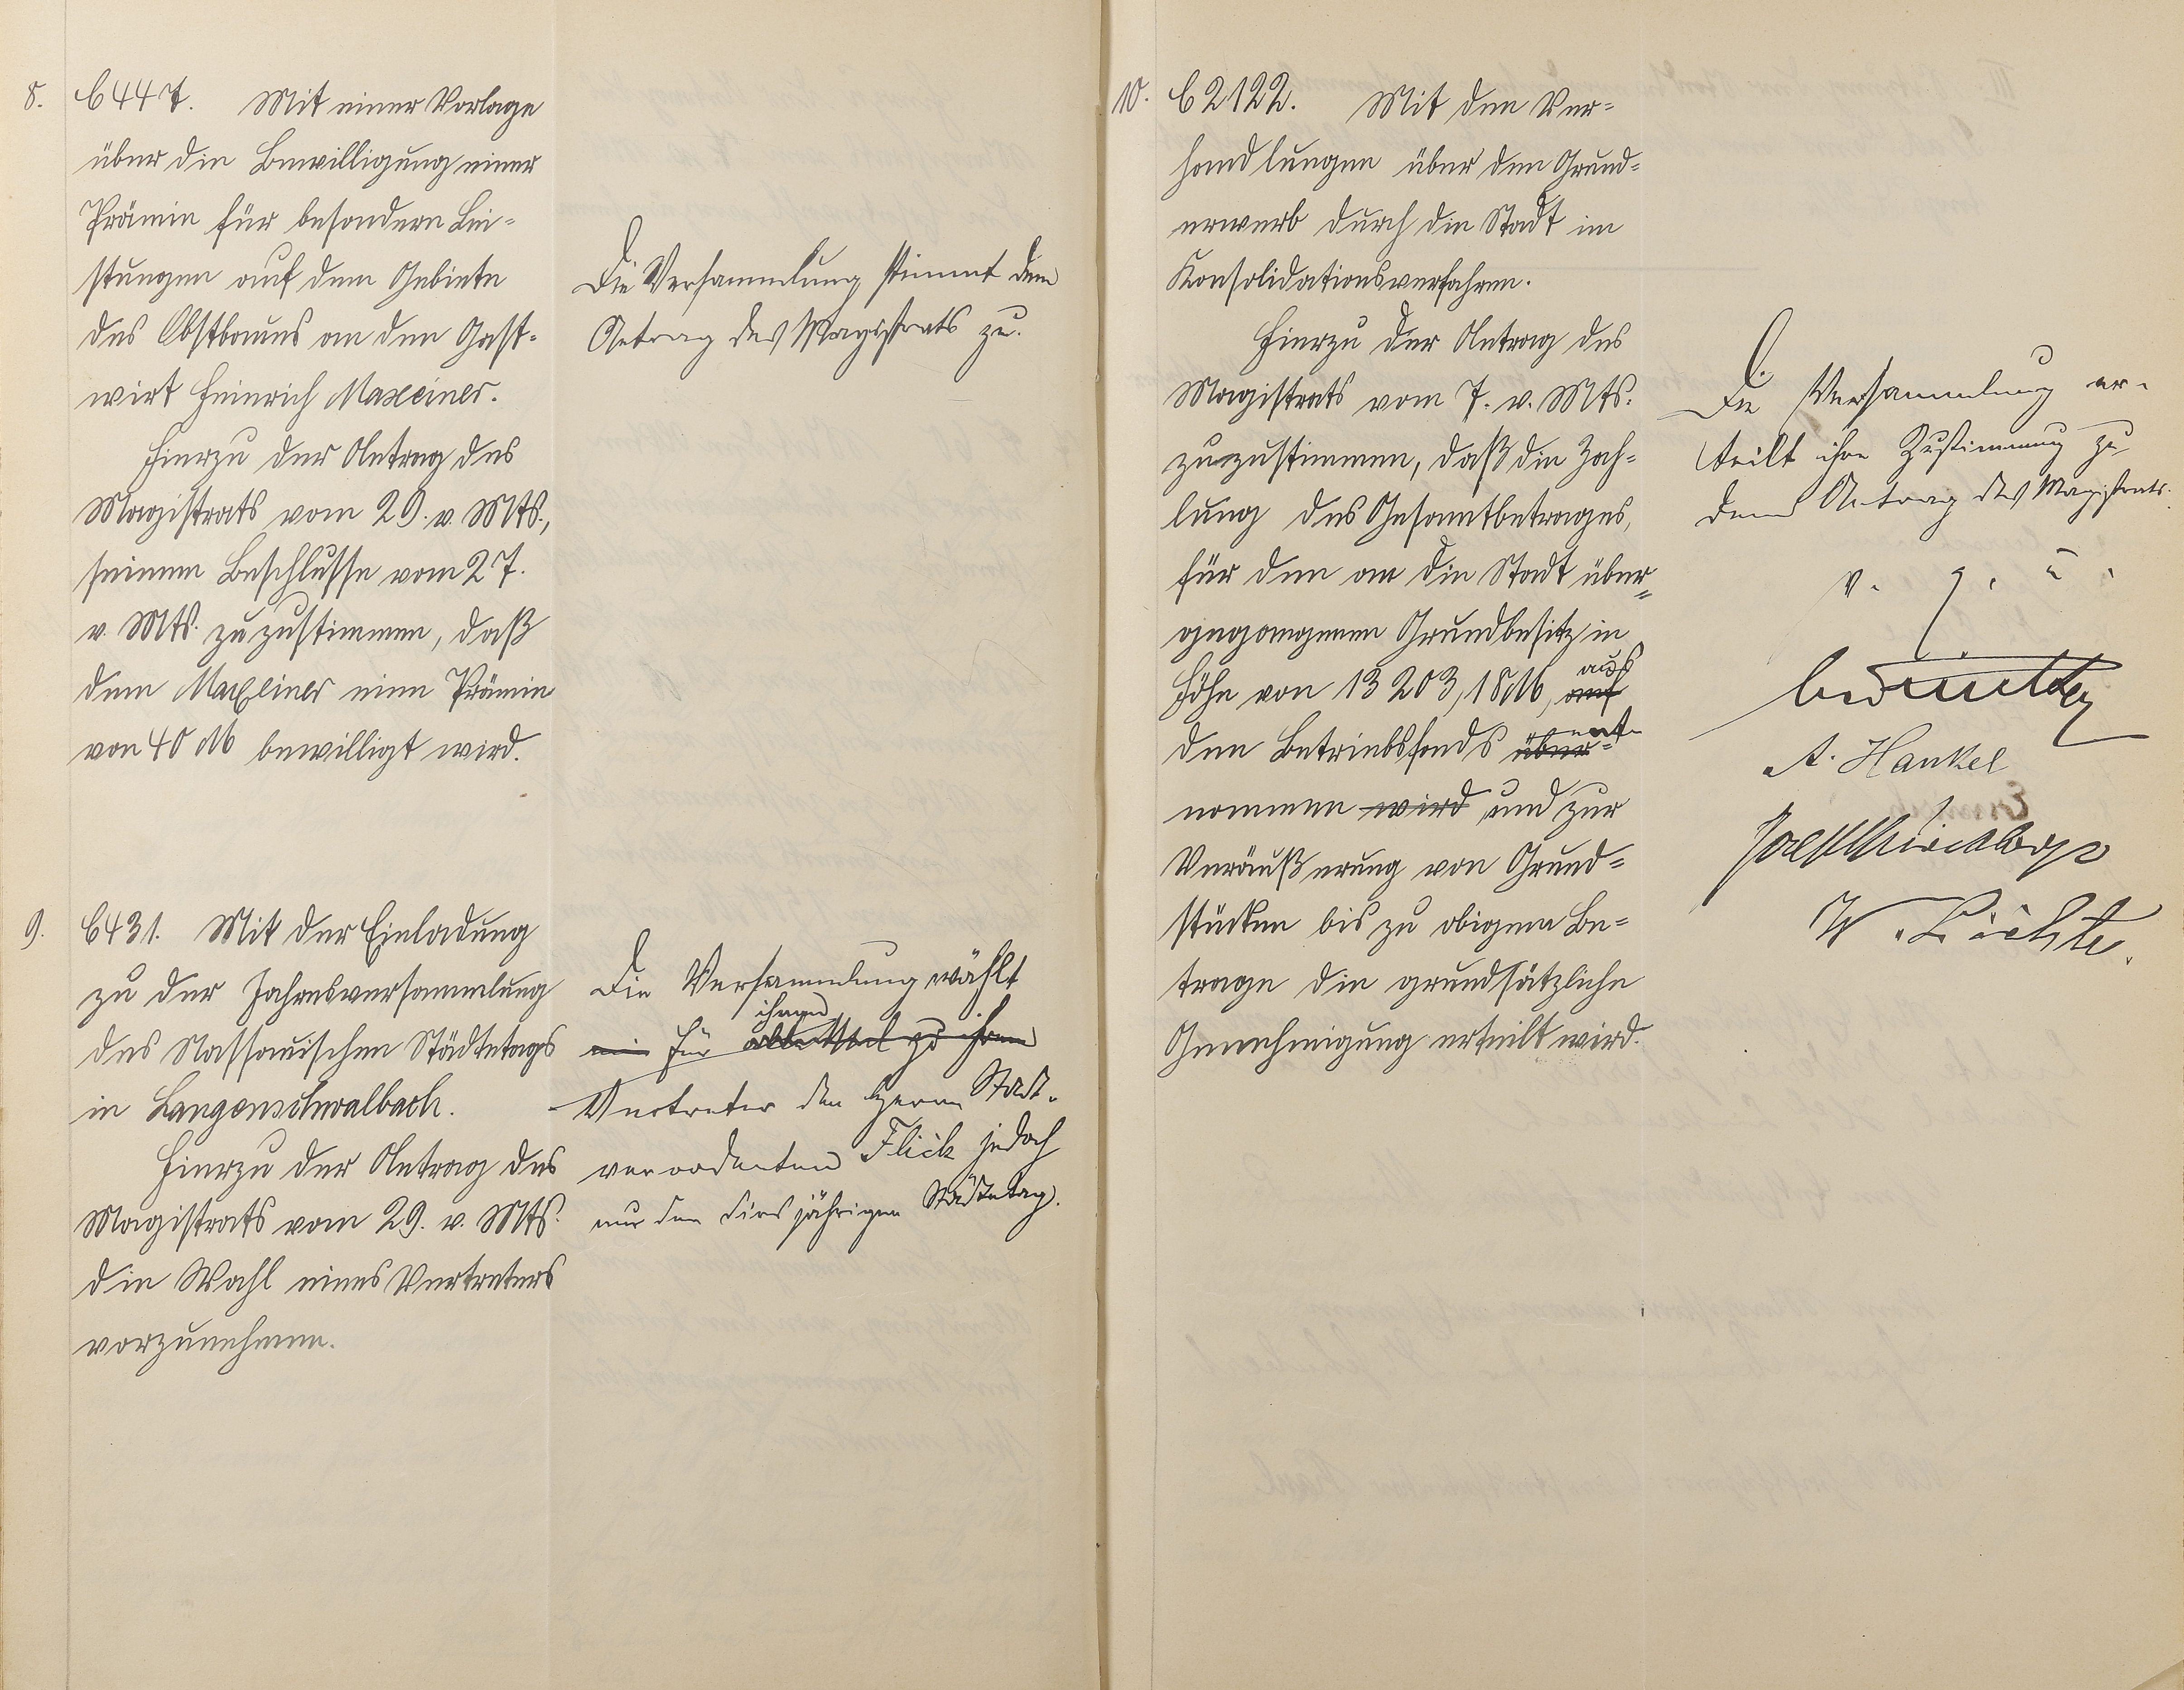 8. C 447. Mit einer Vorlage
über die Bewilligung einer
Prämie für besondere Lei-
stungen auf dem Gebiete
des Obstbaues an den Gast-
wirt Heinrich Maxeiner.
Hierzu der Antrag des
Magistrats vom 29. v. Mts.,
seinem Beschlusse vom 27.
v. Mts. zuzustimmen, daß
dem Maxeiner eine Prämie
von 40 M bewilligt wird.
Die Versammlung stimmt dem
Antrag des Magistrats zu.
9. C 431. Mit der Einladung
zu der Jahresversammlung
des Nassauischen Städtetags
in Langenschwalbach.
Hierzu der Antrag des
Magistrats vom 29. v. Mts.
die Wahl eines Vertreters
vorzunehmen.
Die Versammlung wählt
ihren
für zu ihrem
Vertreter den Herrn Stadt-
verordneten Flick jedoch
nur den diesjährigen Städtetag.
10. C 2122. Mit den Ver-
handlungen über den Grund-
erwerb durch die Stadt im
Konsolidationsverfahren.
Hierzu der Antrag des
Magistrats vom 7. v. Mts.
zuzustimmen, daß die Zah-
lung des Gesamtbetrages,
für den an die Stadt über-
gegangenen Grundbesitz in
aus
Höhe von 13 203,18 M, auf
ent-
den Betriebsfonds über-
nommen wird und zur
Veräußerung von Grund-
stücken bis zu obigem Be-
trage die grundsätzliche
Genehmigung erteilt wird.
Die Versammlung er-
teilt ihre Zustimmung zu
dem Antrag des Magistrats.
v. g. u.
A. Hankel